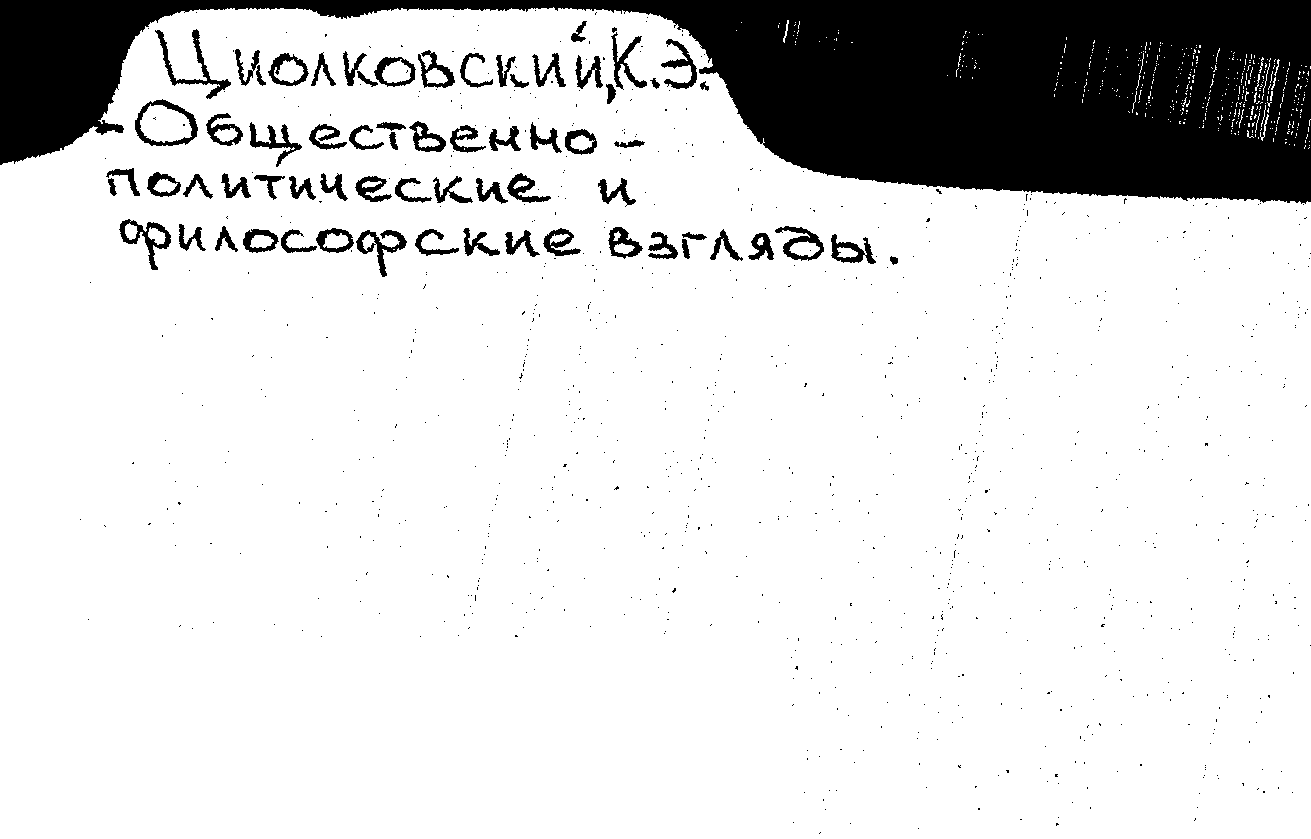 Циолковский, К.Э.-
-Общественно-
политические и
философские взгляды.